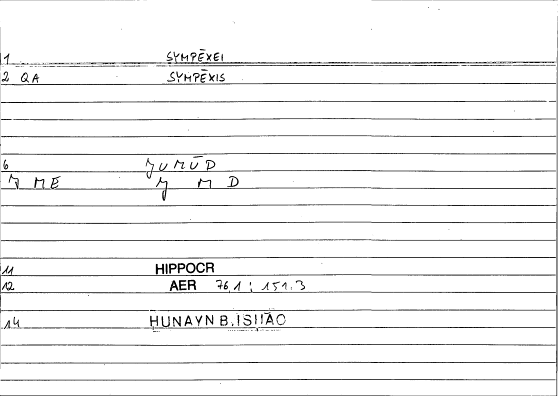 1 SYMPĒXEI
2 QA SYMPĒXIS
6 ǦUMŪD
7 ME Ǧ M D
11 HIPPOCR
12 AER 76,1 ; 151,3
14 HUNAYN B. ISHAQ